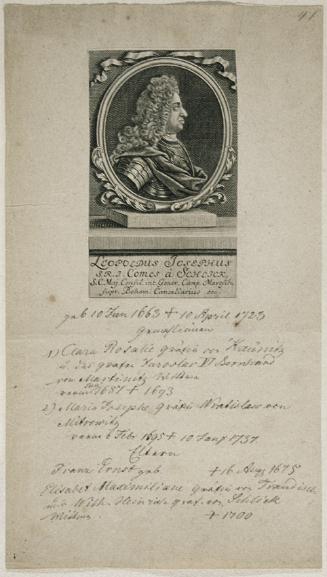 41
LEOPOLDUS JOSEPHUS
S.R.I. Comes à SCHLICK,
S.C. Maj. Consil. int. Gener. Camp. Maresch.
supr. Bohem. Cancellarius etc.
geb 10 Jun 1663 + 10 April 1723
Gemahlinnen
1) Clara Rosalie Gräfin von Kaunitz
u. des Grafen Jaroslav Bernhard
von Martinitz Wittwe
1687 + 1693
2) Maria Josepha Gräfin Wratislaw von
Mitrowitz
verm 6 Febr 1695 + 10 1737
Eltern
Franz Ernst geb + 16 Aug 1675
Elisabet Maximiliane Gräfin von
Wilh. Heinrichs Graf. von Schlick
Wittwe + 1700